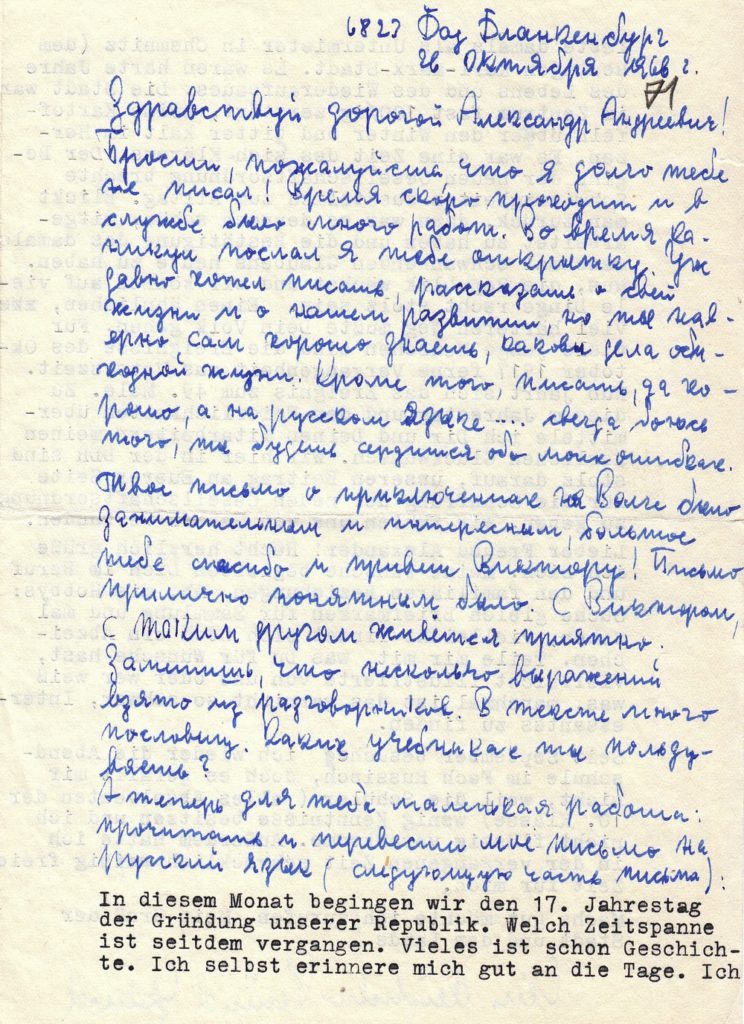 6823 Бад Бланкенбург
26 Октября 1966 г.
71
Здравствуй дорогой Александр Андреевич!
Просии, пожалуйста что я долго тебе
не писал! Время скоро проходит и в
службе было много работ. Во время ка-
никул послал я тебе открытку. Уж
давно хотел писать, рассказать о своей
жизни и о нашем развитии но ты нав-
ерно сам хорошо знаешь, каковы дела
жизни. Кроме того, писать, да хо-
рошо, а на русском языке .... всегда боюсь
того, ты будешь сердиться обо моих ошибках.
Твое письмо о приключениях на Волге было
занимательным и интересным, большое
тебе спасибо и привет Виктору! Письмо
прилично понятным было. С Виктором,
с таким другом живется приятно.
Заметишь, что несколько выражений
взято из разговорников. В тексте много
пословиц. Какие учебникае ты пользу-
ваешь?
А теперь для тебя маленькая работа:
прочитать и перевести мое письмо на
русский язык (следующую часть письма):
In diesem Monat begingen wir den 17. Jahrestag
der Gründung unserer Republik. Welch Zeitspanne
ist seitdem vergangen. Vieles ist schon Geschich-
te. Ich selbst erinnere mich gut an die Tage. Ich